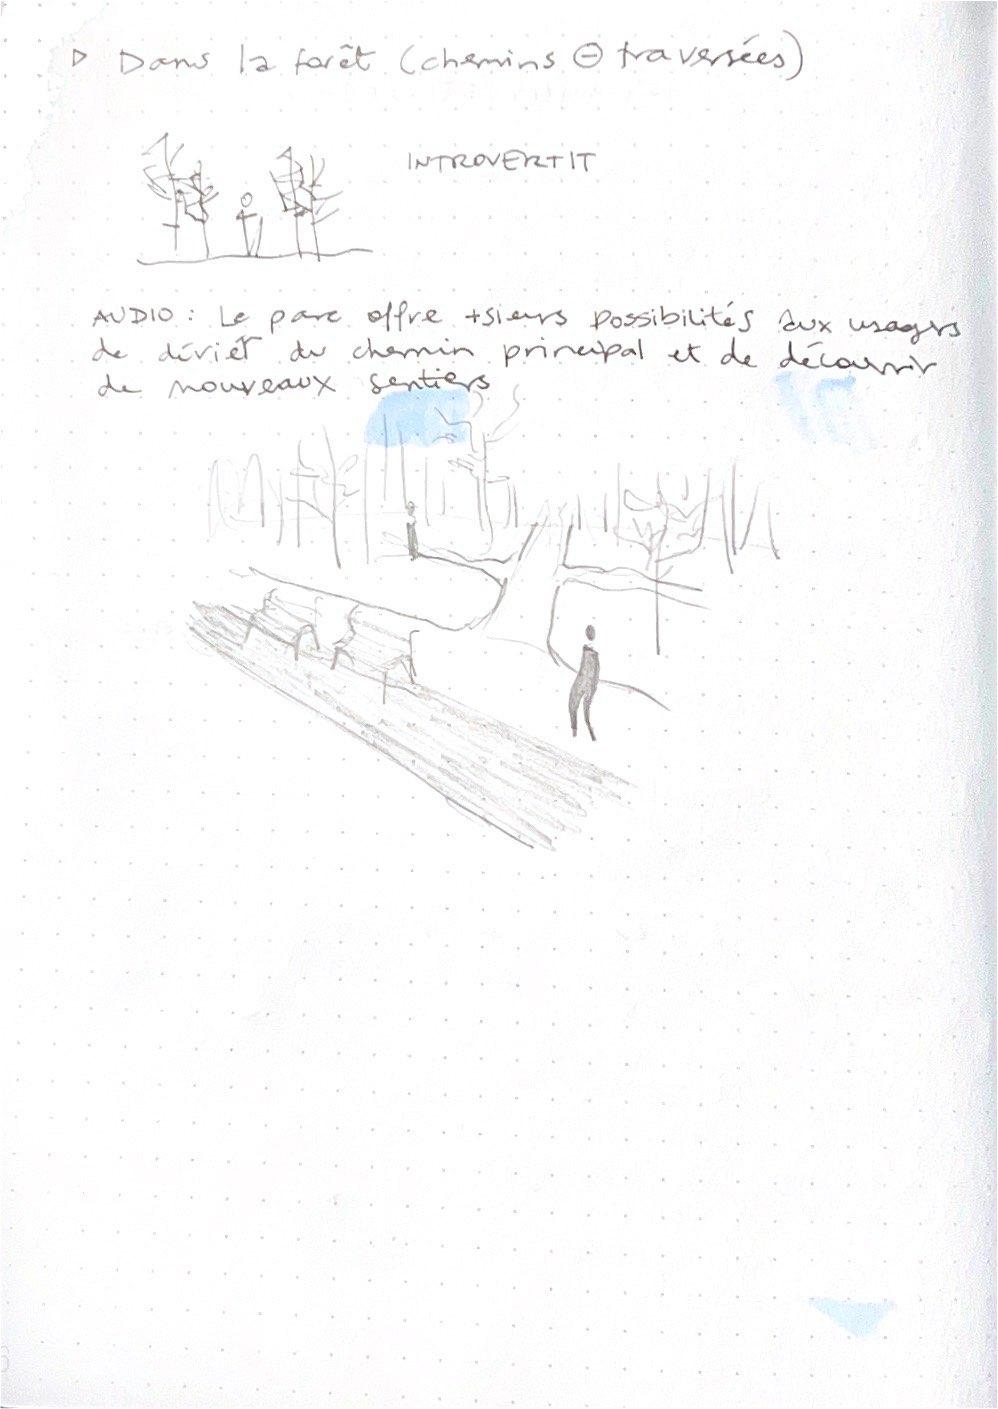 ▷ Dans la forêt (chemins ⊖ traversées)
INTROVERTIT
AUDIO : Le parc offre +sieurs possibilités aux usagers
de dériér du chemin principal et de découvrir
de nouveaux sentiers